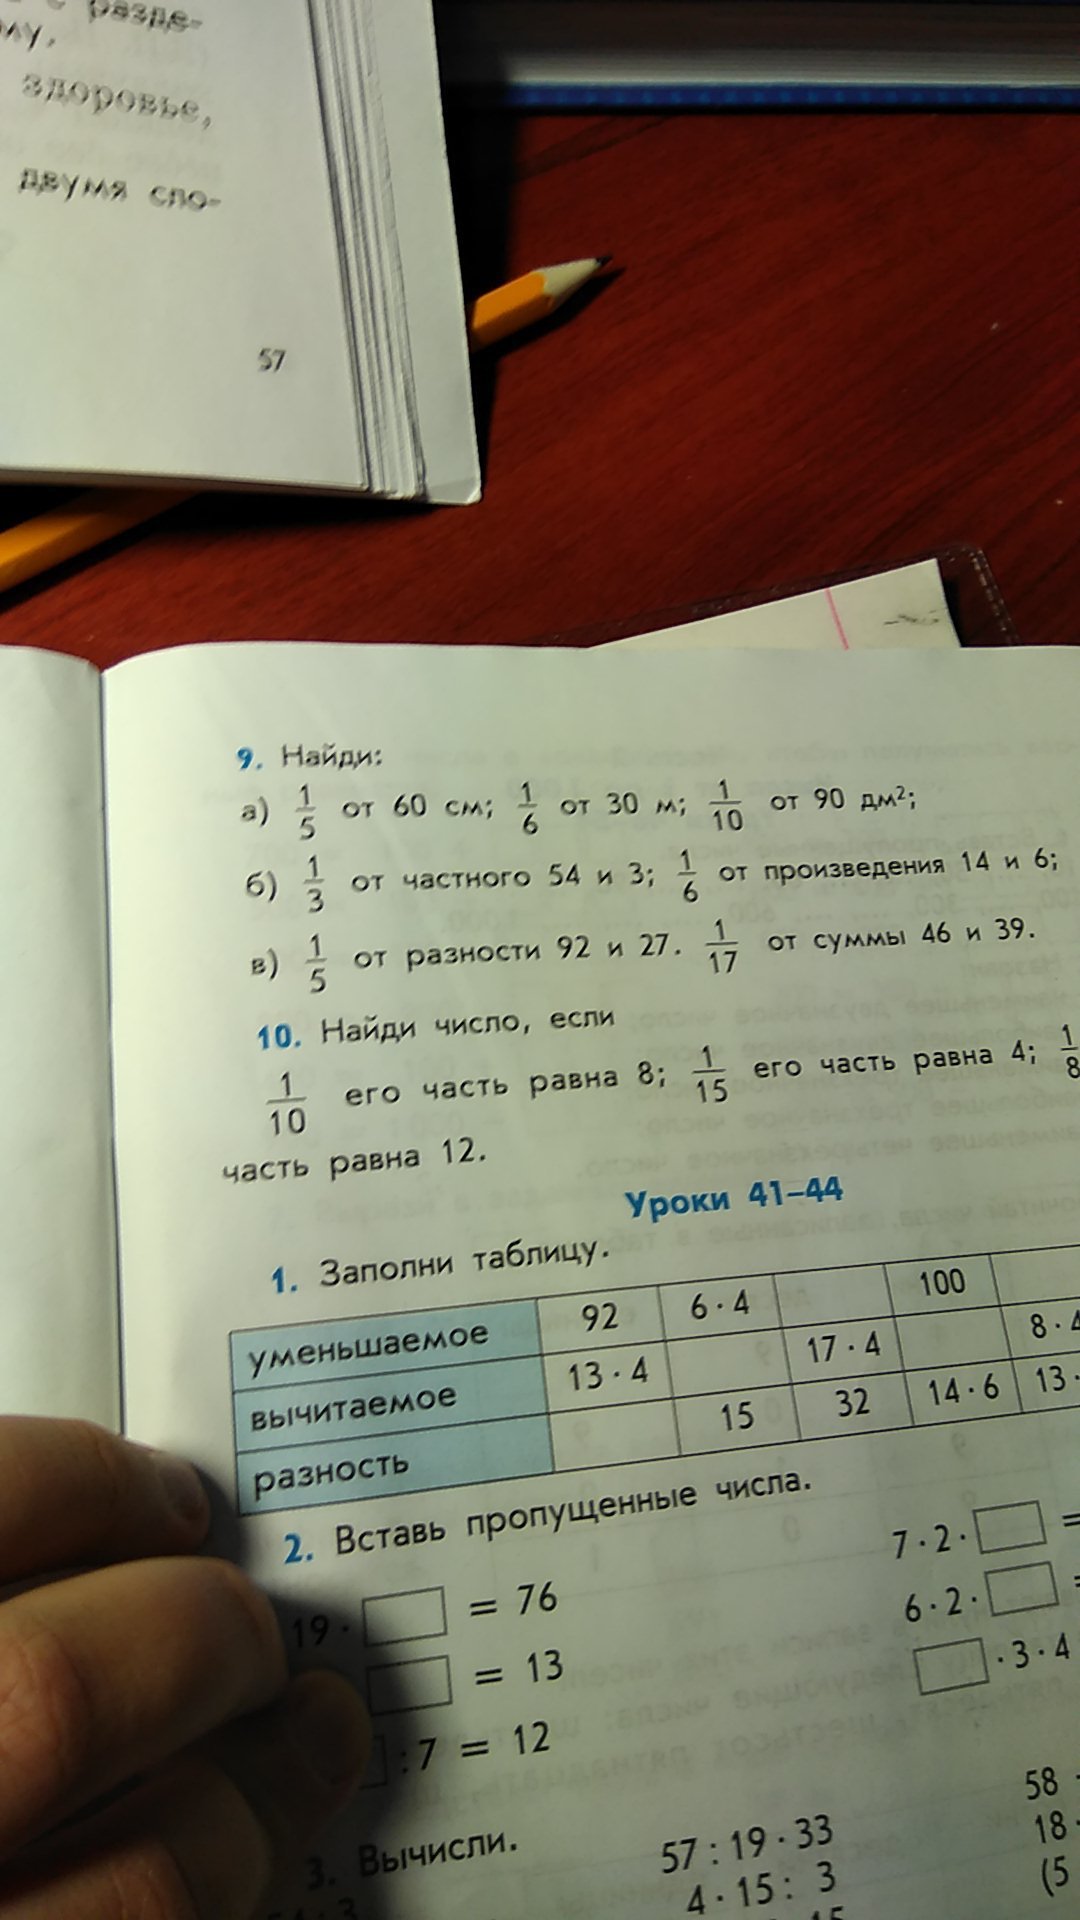 с разде-
му.
здоровье,
двумя сло-
57
9. Найди:
а) 1/5 от 60 см; 1/6 от 30 м; 1/10 от 90 дм²;
б) 1/3 от частного 54 и 3; 1/6 от произведения 14 и 6;
в) 1/5 от разности 92 и 27. 1/17 от суммы 46 и 39.
10. Найди число, если
1/10 его часть равна 8; 1/15 его часть равна 4; 1/8
часть равна 12.
Уроки 41–44
1. Заполни таблицу.
уменьшаемое 92 6 · 4 100
вычитаемое 13 · 4 17 · 4 8 · 4
разность 15 32 14 · 6 13 ·
2. Вставь пропущенные числа.
19 · □ = 76 7 · 2 · □ =
□ = 13 6 · 2 · □ =
□ : 7 = 12 □ · 3 · 4
3. Вычисли.
57 : 19 · 33 58
4 · 15 : 3 18
15 (5